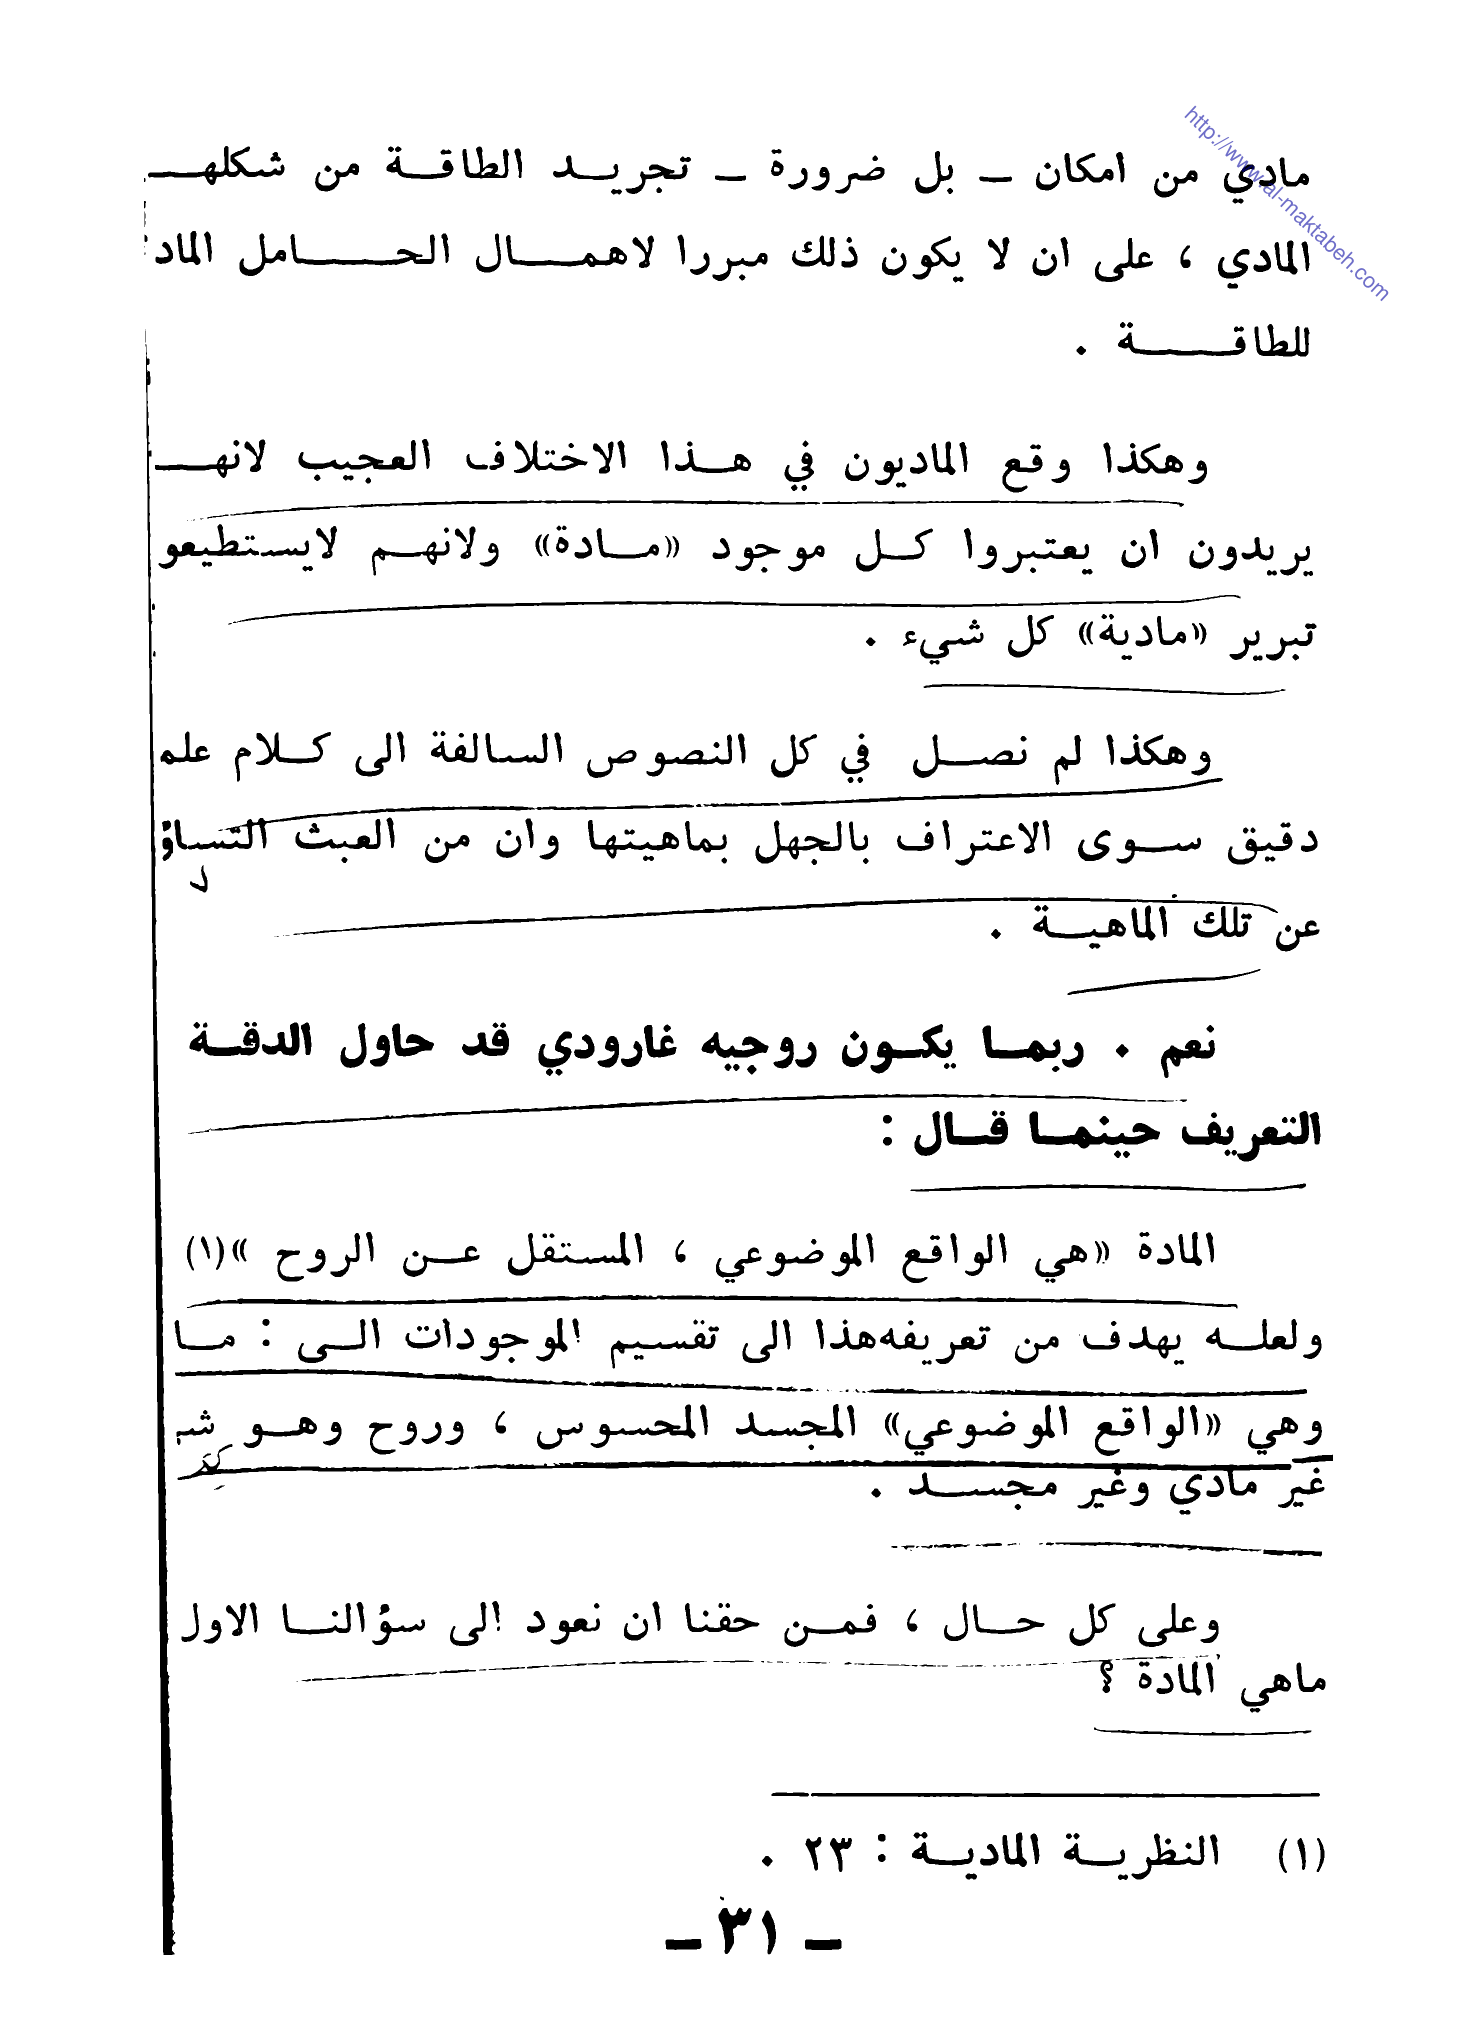 http://www.al-maktabeh.com
مادي من امكان ــ بل ضرورة ــ تجريــد الطاقــة من شكلهــ
المادي ، على ان لا يكون ذلك مبررا لاهمــال الحــامل الماد
للطاقــة .
وهكذا وقع الماديون في هــذا الاختلاف العجيب لانهــ
يريدون ان يعتبروا كــل موجود «مــادة» ولانهــم لايستطيعو
تبرير «مادية» كل شيء .
وهكذا لم نصــل في كل النصوص السالفة الى كــلام علم
دقيق ســوى الاعتراف بالجهل بماهيتها وان من العبث التساؤ
عن تلك الماهيــة .
نعم . ربمــا يكــون روجيه غارودي قد حاول الدقــة
التعريف حينمــا قــال :
المادة «هي الواقع الموضوعي ، المستقل عــن الروح »(١)
ولعلــه يهدف من تعريفه‌هذا الى تقسيم الموجودات الــى : مــا
وهي «الواقع الموضوعي» المجسد المحسوس ، وروح وهــو شـ
غير مادي وغير مجســد .
وعلى كل حــال ، فمــن حقنا ان نعود الى سؤالنــا الاول
ماهي المادة ؟
(١) النظريــة الماديــة : ٢٣ .
ــ ٣١ ــ